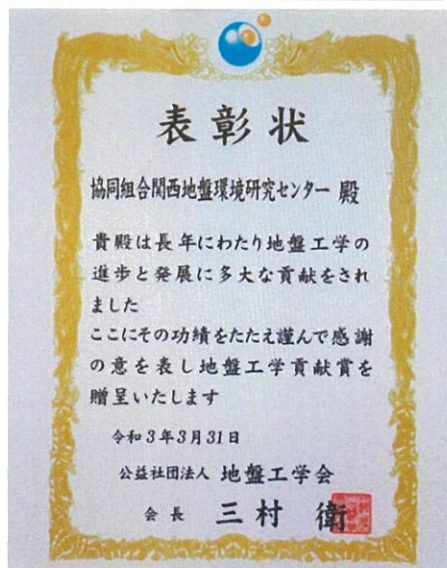 表彰状
協同組合関西地盤環境研究センター 殿
貴殿は長年にわたり地盤工学の
進歩と発展に多大な貢献をされ
ました
ここにその功績をたたえ謹んで感謝
の意を表し地盤工学貢献賞を
贈呈いたします
令和3年3月31日
公益社団法人 地盤工学会
会長 三村 衛